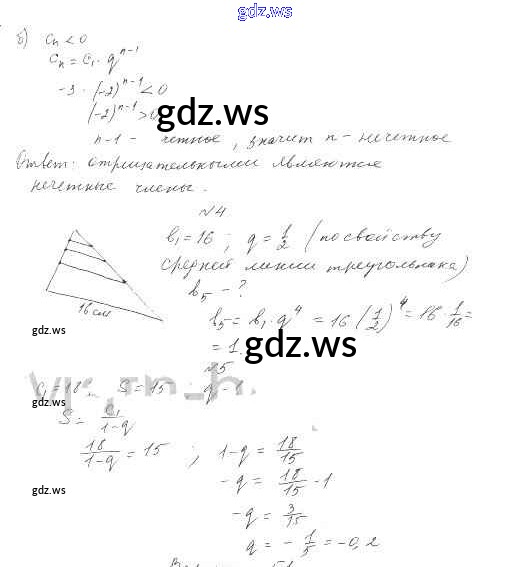 gdz.ws
б) cₙ < 0
cₙ = c₁ · qⁿ⁻¹
-3 · (-2)ⁿ⁻¹ < 0
(-2)ⁿ⁻¹ > 0
gdz.ws
n-1 - четное, значит n - нечетное
Ответ: отрицательными являются
нечетные члены.
№4
b₁ = 16 ; q = 1/2 (по свойству
средней линии треугольника)
b₅ - ?
16 см
b₅ = b₁ · q⁴ = 16 (1/2)⁴ = 16 · 1/16 =
= 1.
gdz.ws
gdz.ws
№5
c₁ = 18 S = 15 q - ?
gdz.ws
S = c₁/(1-q)
18/(1-q) = 15 ; 1-q = 18/15
-q = 18/15 - 1
gdz.ws
-q = 3/15
q = - 1/5 = -0,2